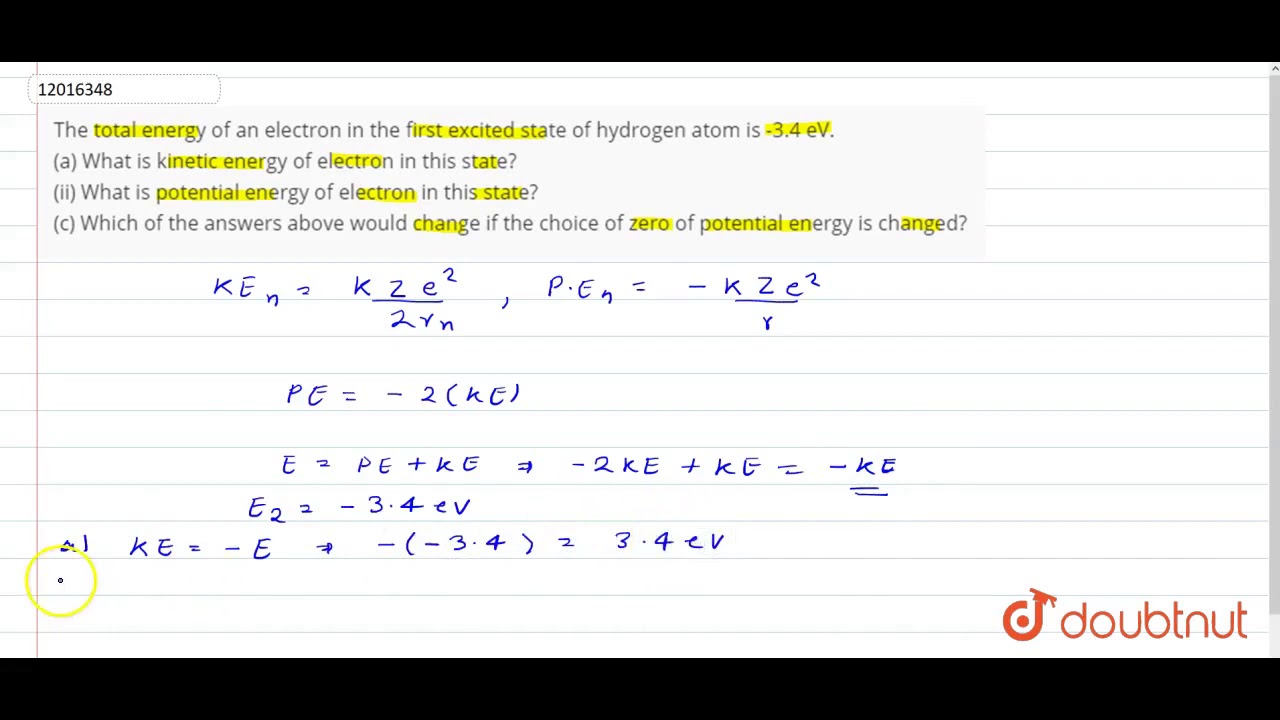 12016348
The total energy of an electron in the first excited state of hydrogen atom is -3.4 eV.
(a) What is kinetic energy of electron in this state?
(ii) What is potential energy of electron in this state?
(c) Which of the answers above would change if the choice of zero of potential energy is changed?
KEₙ = K Z e² / 2rₙ , P.Eₙ = - K Z e² / r
PE = - 2(KE)
E = PE + KE ⇒ -2KE + KE = -KE
E₂ = -3.4 eV
a) KE = -E ⇒ -(-3.4) = 3.4 eV
doubtnut